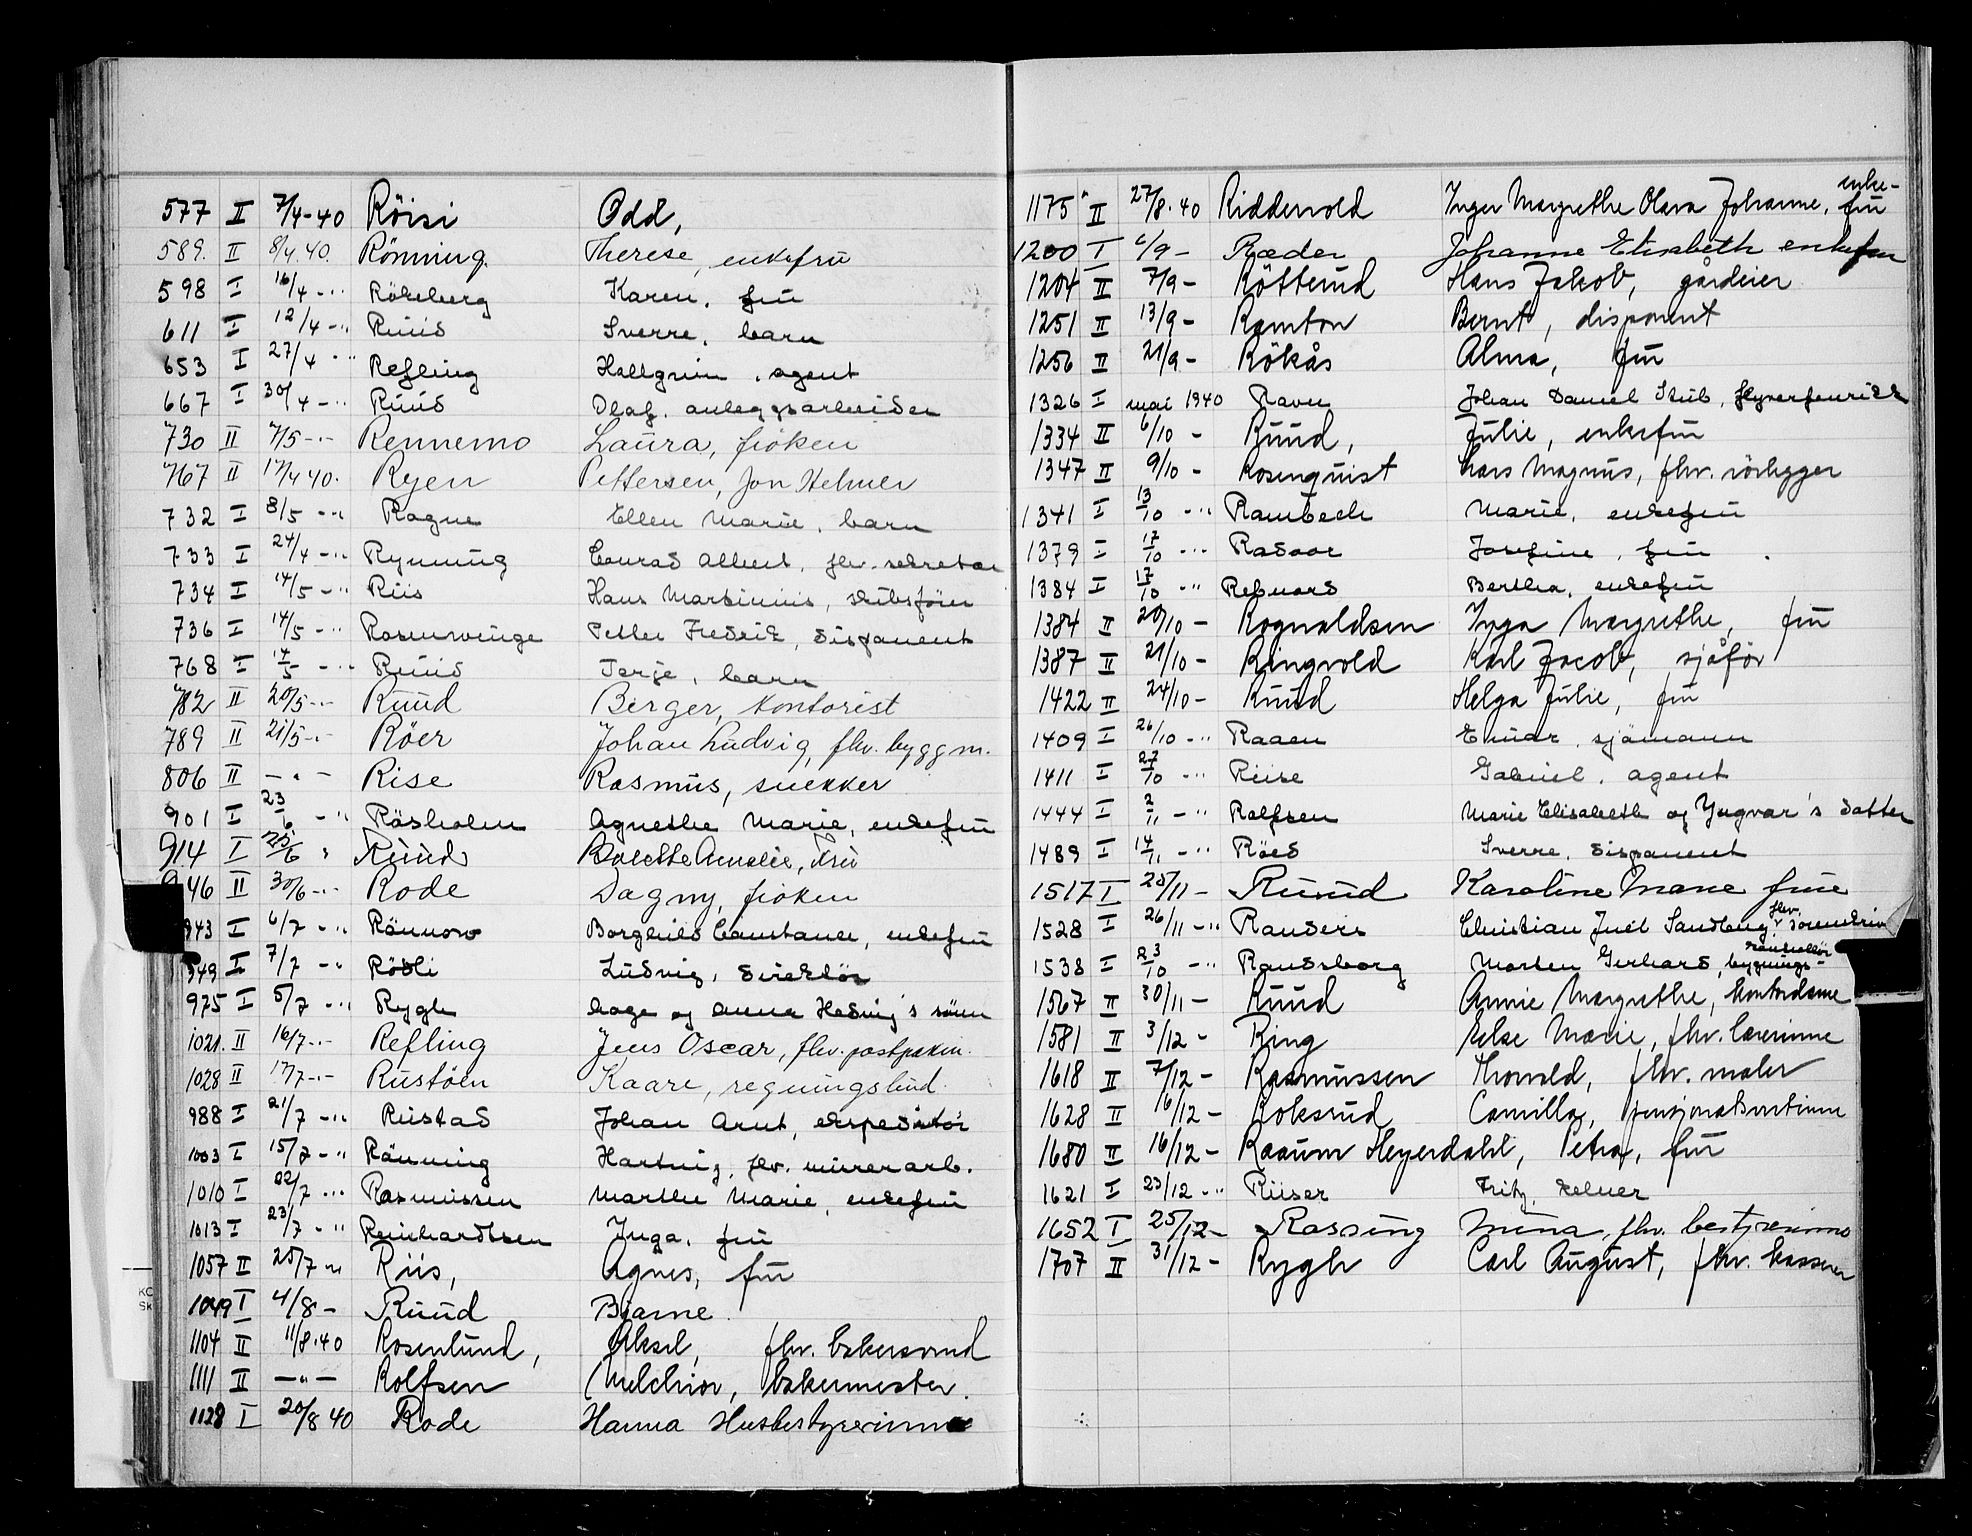 577 II 7/4-40 Röisi Odd,
589. II 8/4.40. Rönning. Therese, enkefru
598 I 16/4 - " Rökeberg Karen, fru
611 I 12/4 - " Ruud Sverre, barn
653 I 27/4 " Refling Hallgrim, agent
667 I 30/4 - " Ruud Olaf, anleggsarbeider
730 II 7/5 - " - Rennemo Laura, fröken
767 II 17/4 40. Ryen Pettersen, Jon Helmer
732 I 8/5 - " Rogne Ellen Marie, barn
733 I 24/4 - " Rynning Conrad Albert, fhv. sekretær
734 I 14/5 - " Riis Hans Martinius, skibsförer
736 I 14/5 - " Rosenvinge Petter Fredrik, disponent
768 I 14/5 - " Ruud Terje, barn
782 II 20/5 - " - Ruud Berger, kontorist
789 II 21/5 - " - Röer Johan Ludvig, fhv. byggm.
806 II - " - Rise Rasmus, snekker
901 I 23/6 - " Råsholm Agnethe Marie, enkefru
914 I 25/6 " Ruud Bolette Amalie, Fru
946 II 30/6 - " - Rode Dagny, fröken
943 I 6/7 - " Rönnow Borghild Constance, enkefru
949 I 7/7 - " Rödli Ludvig, direktör
975 I 5/7 - " Rygh Aage og Anna Hedvig's sönn
1021. II 16/7 - " - Refling Jens Oscar, fhv. postpakm.
1028 II 17/7 - " - Rustöen Kaare, regningsbud.
988 I 21/7 - " Rustad Johan Arnt, ekspeditör
1003 I 15/7 - " Rönning Hartvig, fhv. murerarb.
1010 I 22/7 - " Rasmussen Marthe Marie, enkefru
1013 I 23/7 - " Reinhardtsen Inga, fru
1057 II 25/7 - " Riis, Agnes, fru
1049 I 4/8 - Ruud Bjarne
1104 II 11/8.40 Rosenlund, Aksel, fhv. bakersvend
1111 II - " - Rolfsen Melchior, bakermester.
1128 I 20/8 40 Rode Hanna Husbestyrerinne
1175 II 27/8.40 Riddervold Inger Margrethe Olava Johanne, enke-fru
1200 I 6/9 - Ræder Johanne Elisabeth enkefru
1204 II 7/9 - Rötterud Hans Jakob, gårdeier
1251 II 13/9 - Ramton Bernt, disponent
1256 II 21/9 - Rökås Alma, fru
1326 I mai 1940 Ravn Johan Daniel Stub, flyverfenrikk
1334 II 6/10 - Ruud, Julie, enkefru
1347 II 9/10 - Rosenquist Lars Magnus, fhv. rörlegger
1341 I 13/10 - " Rambech Marie, enkefru
1379 I 17/10 - " Rasoor Josefine, fru
1384 I 17/10 - " Refnord Bertha, enkefru
1384 II 20/10 - Rognaldsen Inga Margrethe, fru
1387 II 21/10 - Ringvold Karl Jacob, sjåför
1422 II 24/10 - Ruud Helga Julie, fru
1409 I 26/10 - " Raaen Einar, sjömann
1411 I 27/10 - " Riise Gabriel, agent
1444 I 2/11 - " Rolfsen Marie Elisabeth og Yngvar's datter
1489 I 14/11 - " Röed Sverre, disponent
1517 I 25/11 - Ruud Karoline Marie frue
1528 I 26/11 - " Randers Christian Juel Sandberg, fhv. sorenskriv
1538 I 23/10 - " Randsborg Morten Gerhard, bygnings-kontrollör
1567 II 30/11 - Ruud Annie Margrethe, kontordame
1581 II 3/12 - Ring Else Marie, fhv. lærerinne
1618 II 7/12 - Rasmussen Thorvald, fhv. maler
1628 II 6/12 - Roksrud Camilla, pensjonatvertinne
1680 II 16/12 - Raaum Heyerdahl, Petra, fru
1621 I 23/12 - " Riiser Fritz, kelner
1652 I 25/12 - Rossing Mina, fhv. bestyrerinne
1707 II 31/12 - Rygh Carl August, fhv. kasserer